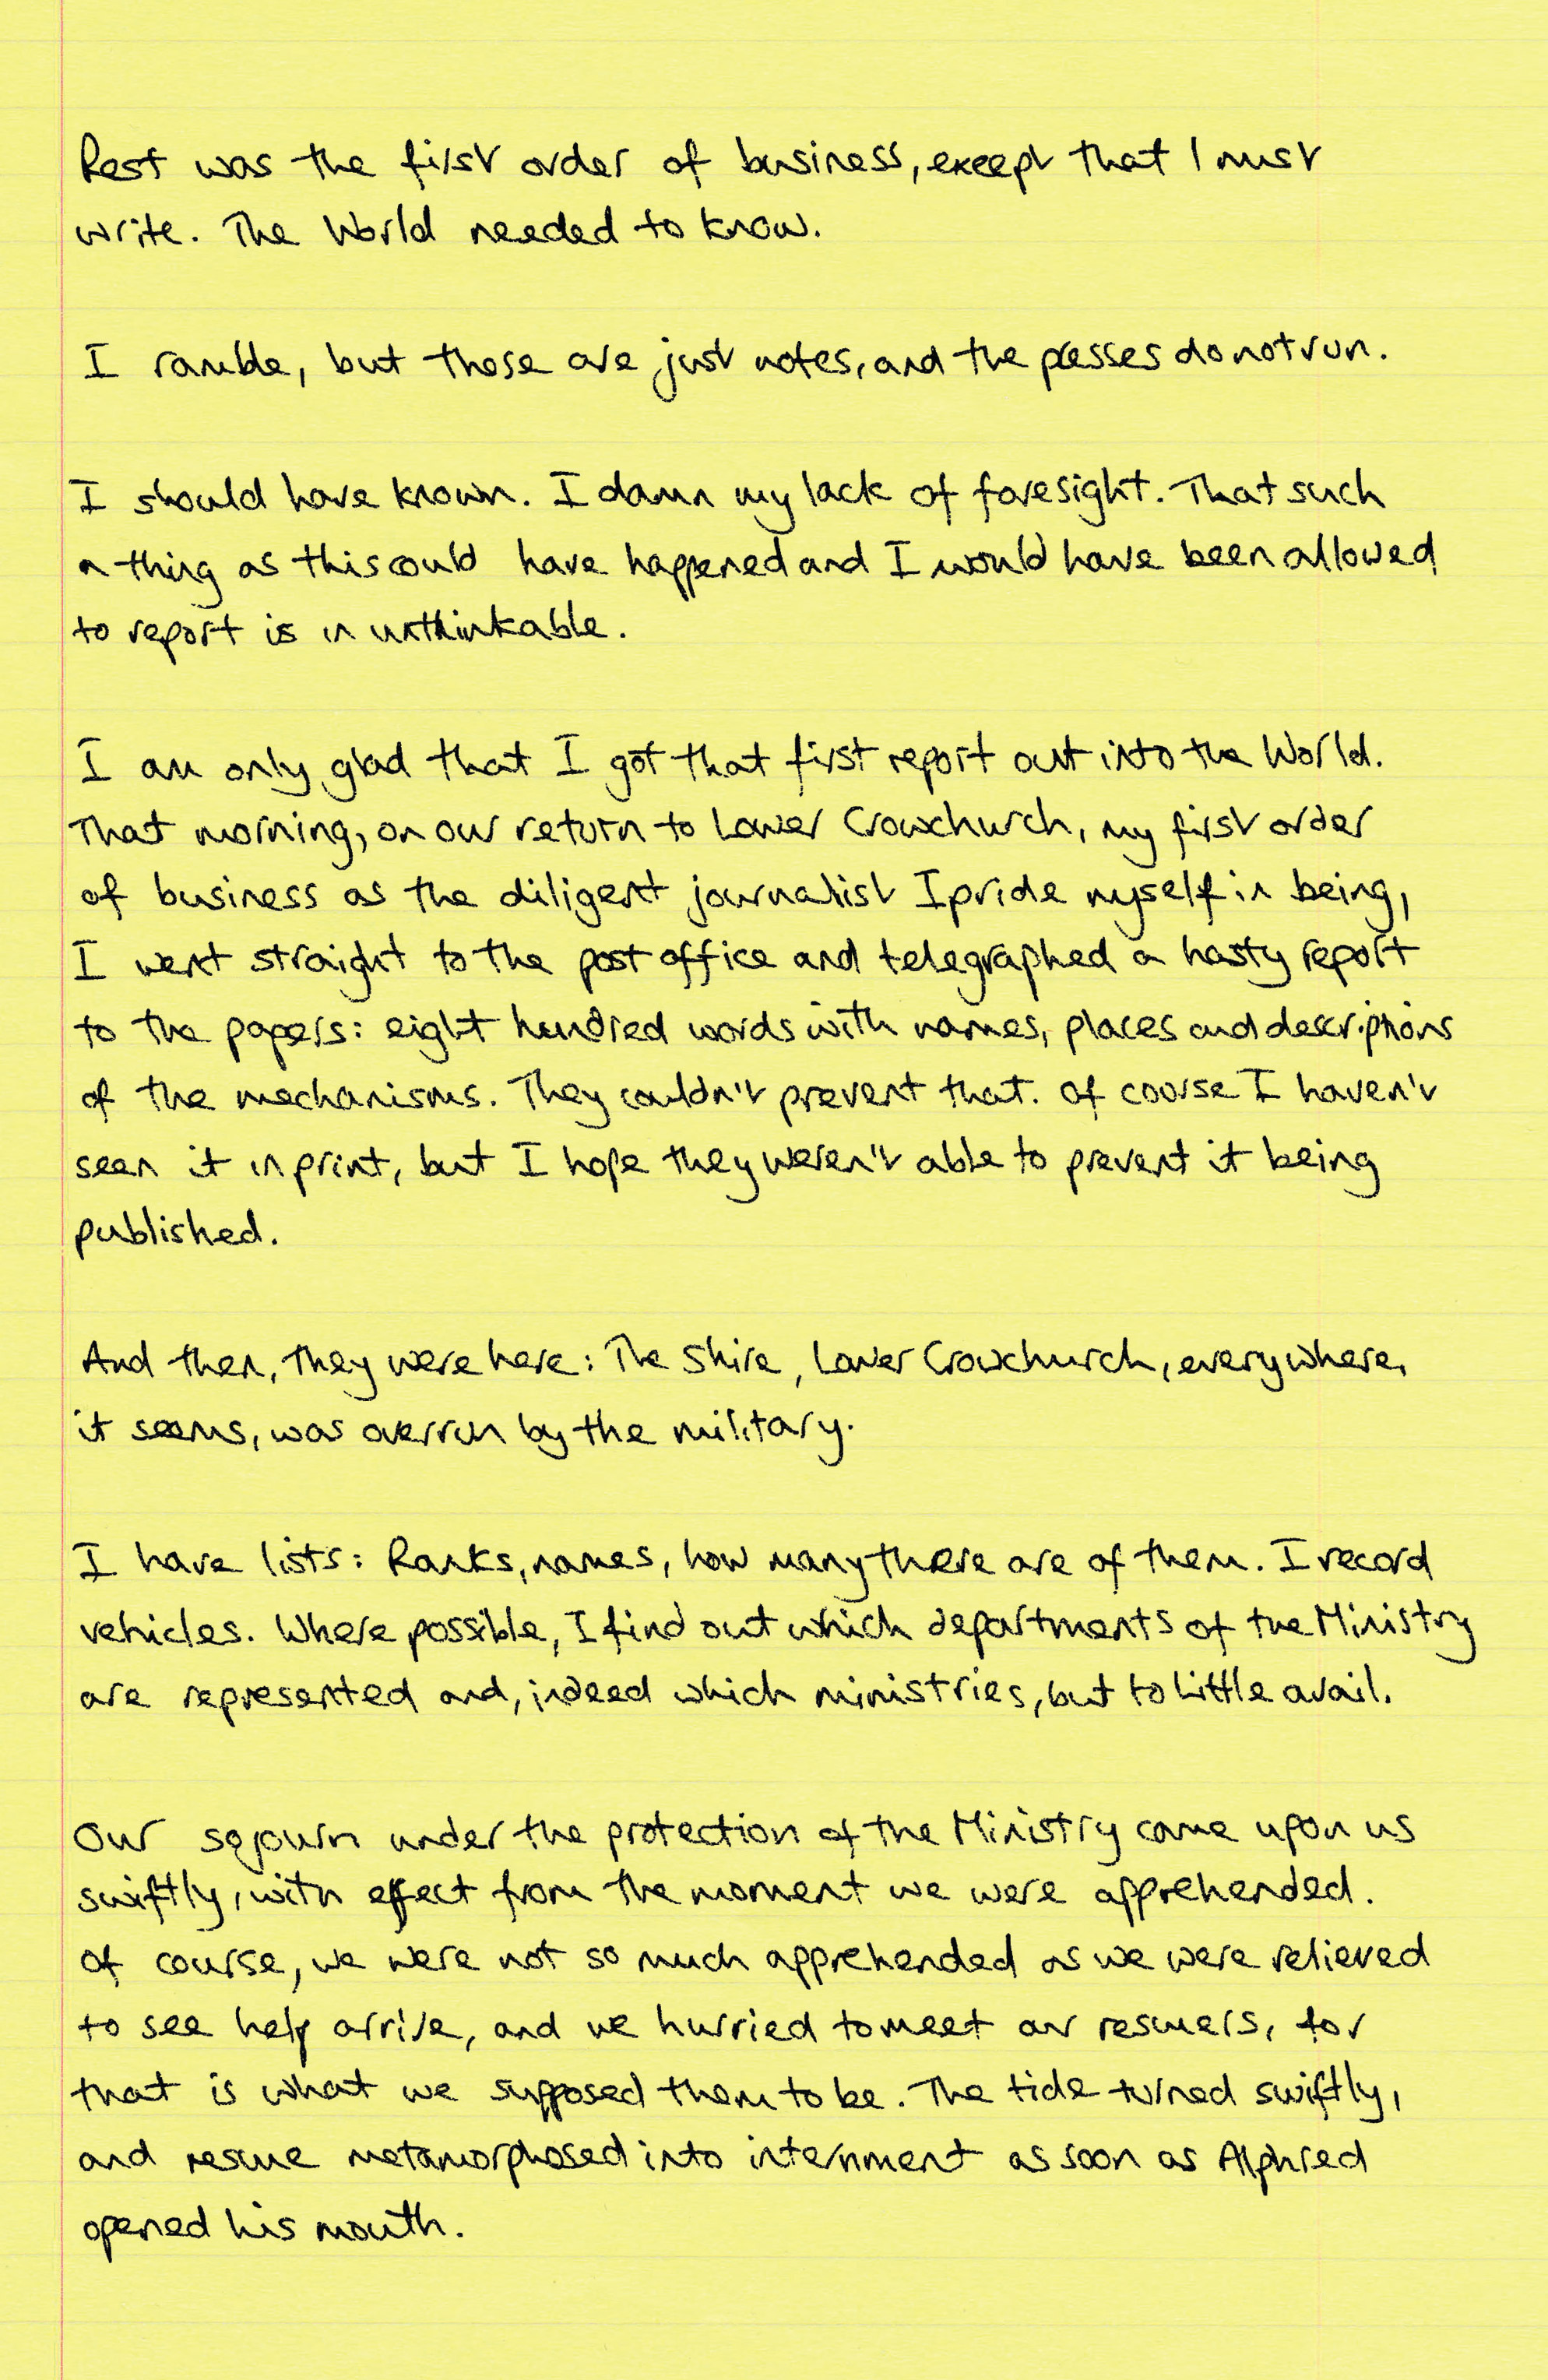 Rest was the first order of business, except that I must
write. The World needed to know.
I ramble, but these are just notes, and the presses do not run.
I should have known. I damn my lack of foresight. That such
a thing as this could have happened and I would have been allowed
to report is in unthinkable.
I am only glad that I got that first report out into the World.
That morning, on our return to Lower Crowchurch, my first order
of business as the diligent journalist I pride myself in being,
I went straight to the post office and telegraphed a hasty report
to the papers: eight hundred words with names, places and descriptions
of the mechanisms. They couldn't prevent that. Of course I haven't
seen it in print, but I hope they weren't able to prevent it being
published.
And then, they were here: The Shire, Lower Crowchurch, everywhere,
it seems, was overrun by the military.
I have lists: Ranks, names, how many there are of them. I record
vehicles. Where possible, I find out which departments of the Ministry
are represented and, indeed which ministries, but to little avail.
Our sojourn under the protection of the Ministry came upon us
swiftly, with effect from the moment we were apprehended.
Of course, we were not so much apprehended as we were relieved
to see help arrive, and we hurried to meet our rescuers, for
that is what we supposed them to be. The tide turned swiftly,
and rescue metamorphosed into internment as soon as Alphred
opened his mouth.